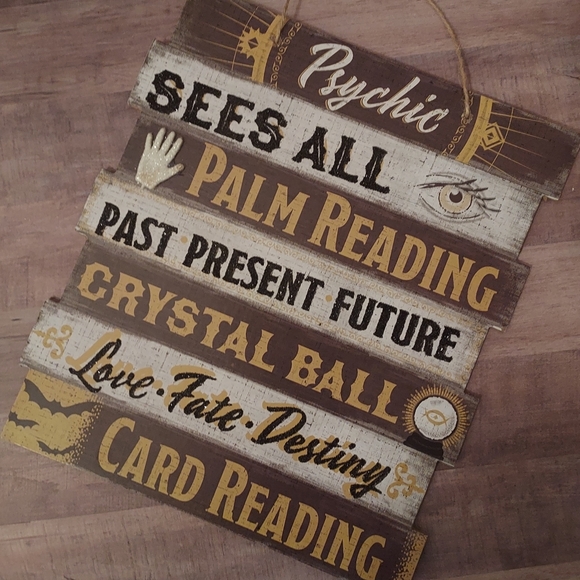 Psychic
SEES ALL
PALM READING
PAST · PRESENT · FUTURE
CRYSTAL BALL
Love · Fate · Destiny
CARD READING